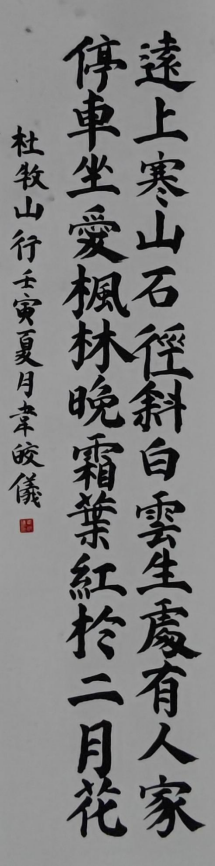 遠上寒山石徑斜白雲生處有人家
停車坐愛楓林晚霜葉紅於二月花
杜牧山行壬寅夏月韋皎儀